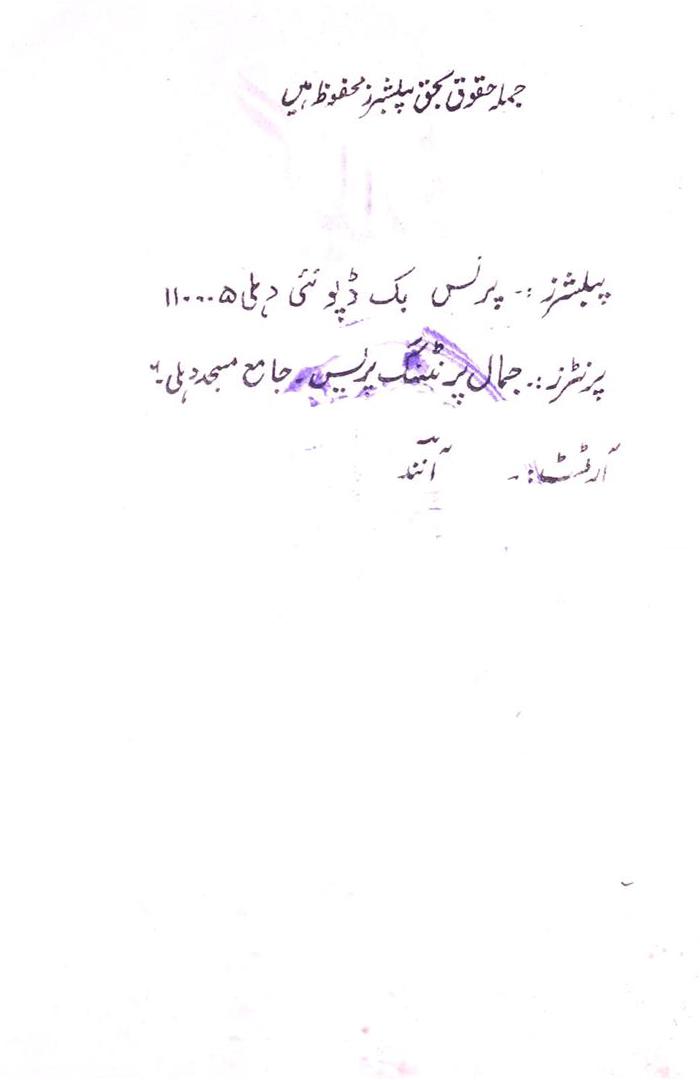 جملہ حقوق بحق پبلشرز محفوظ ہیں
پبلشرز :۔ پرنس بک ڈپو نئی دہلی ۱۱۰۰۰۵
پرنٹرز :۔ جمال پرنٹنگ پریس ۔ جامع مسجد دہلی ۔ ۶
آرٹسٹ :۔ آنند